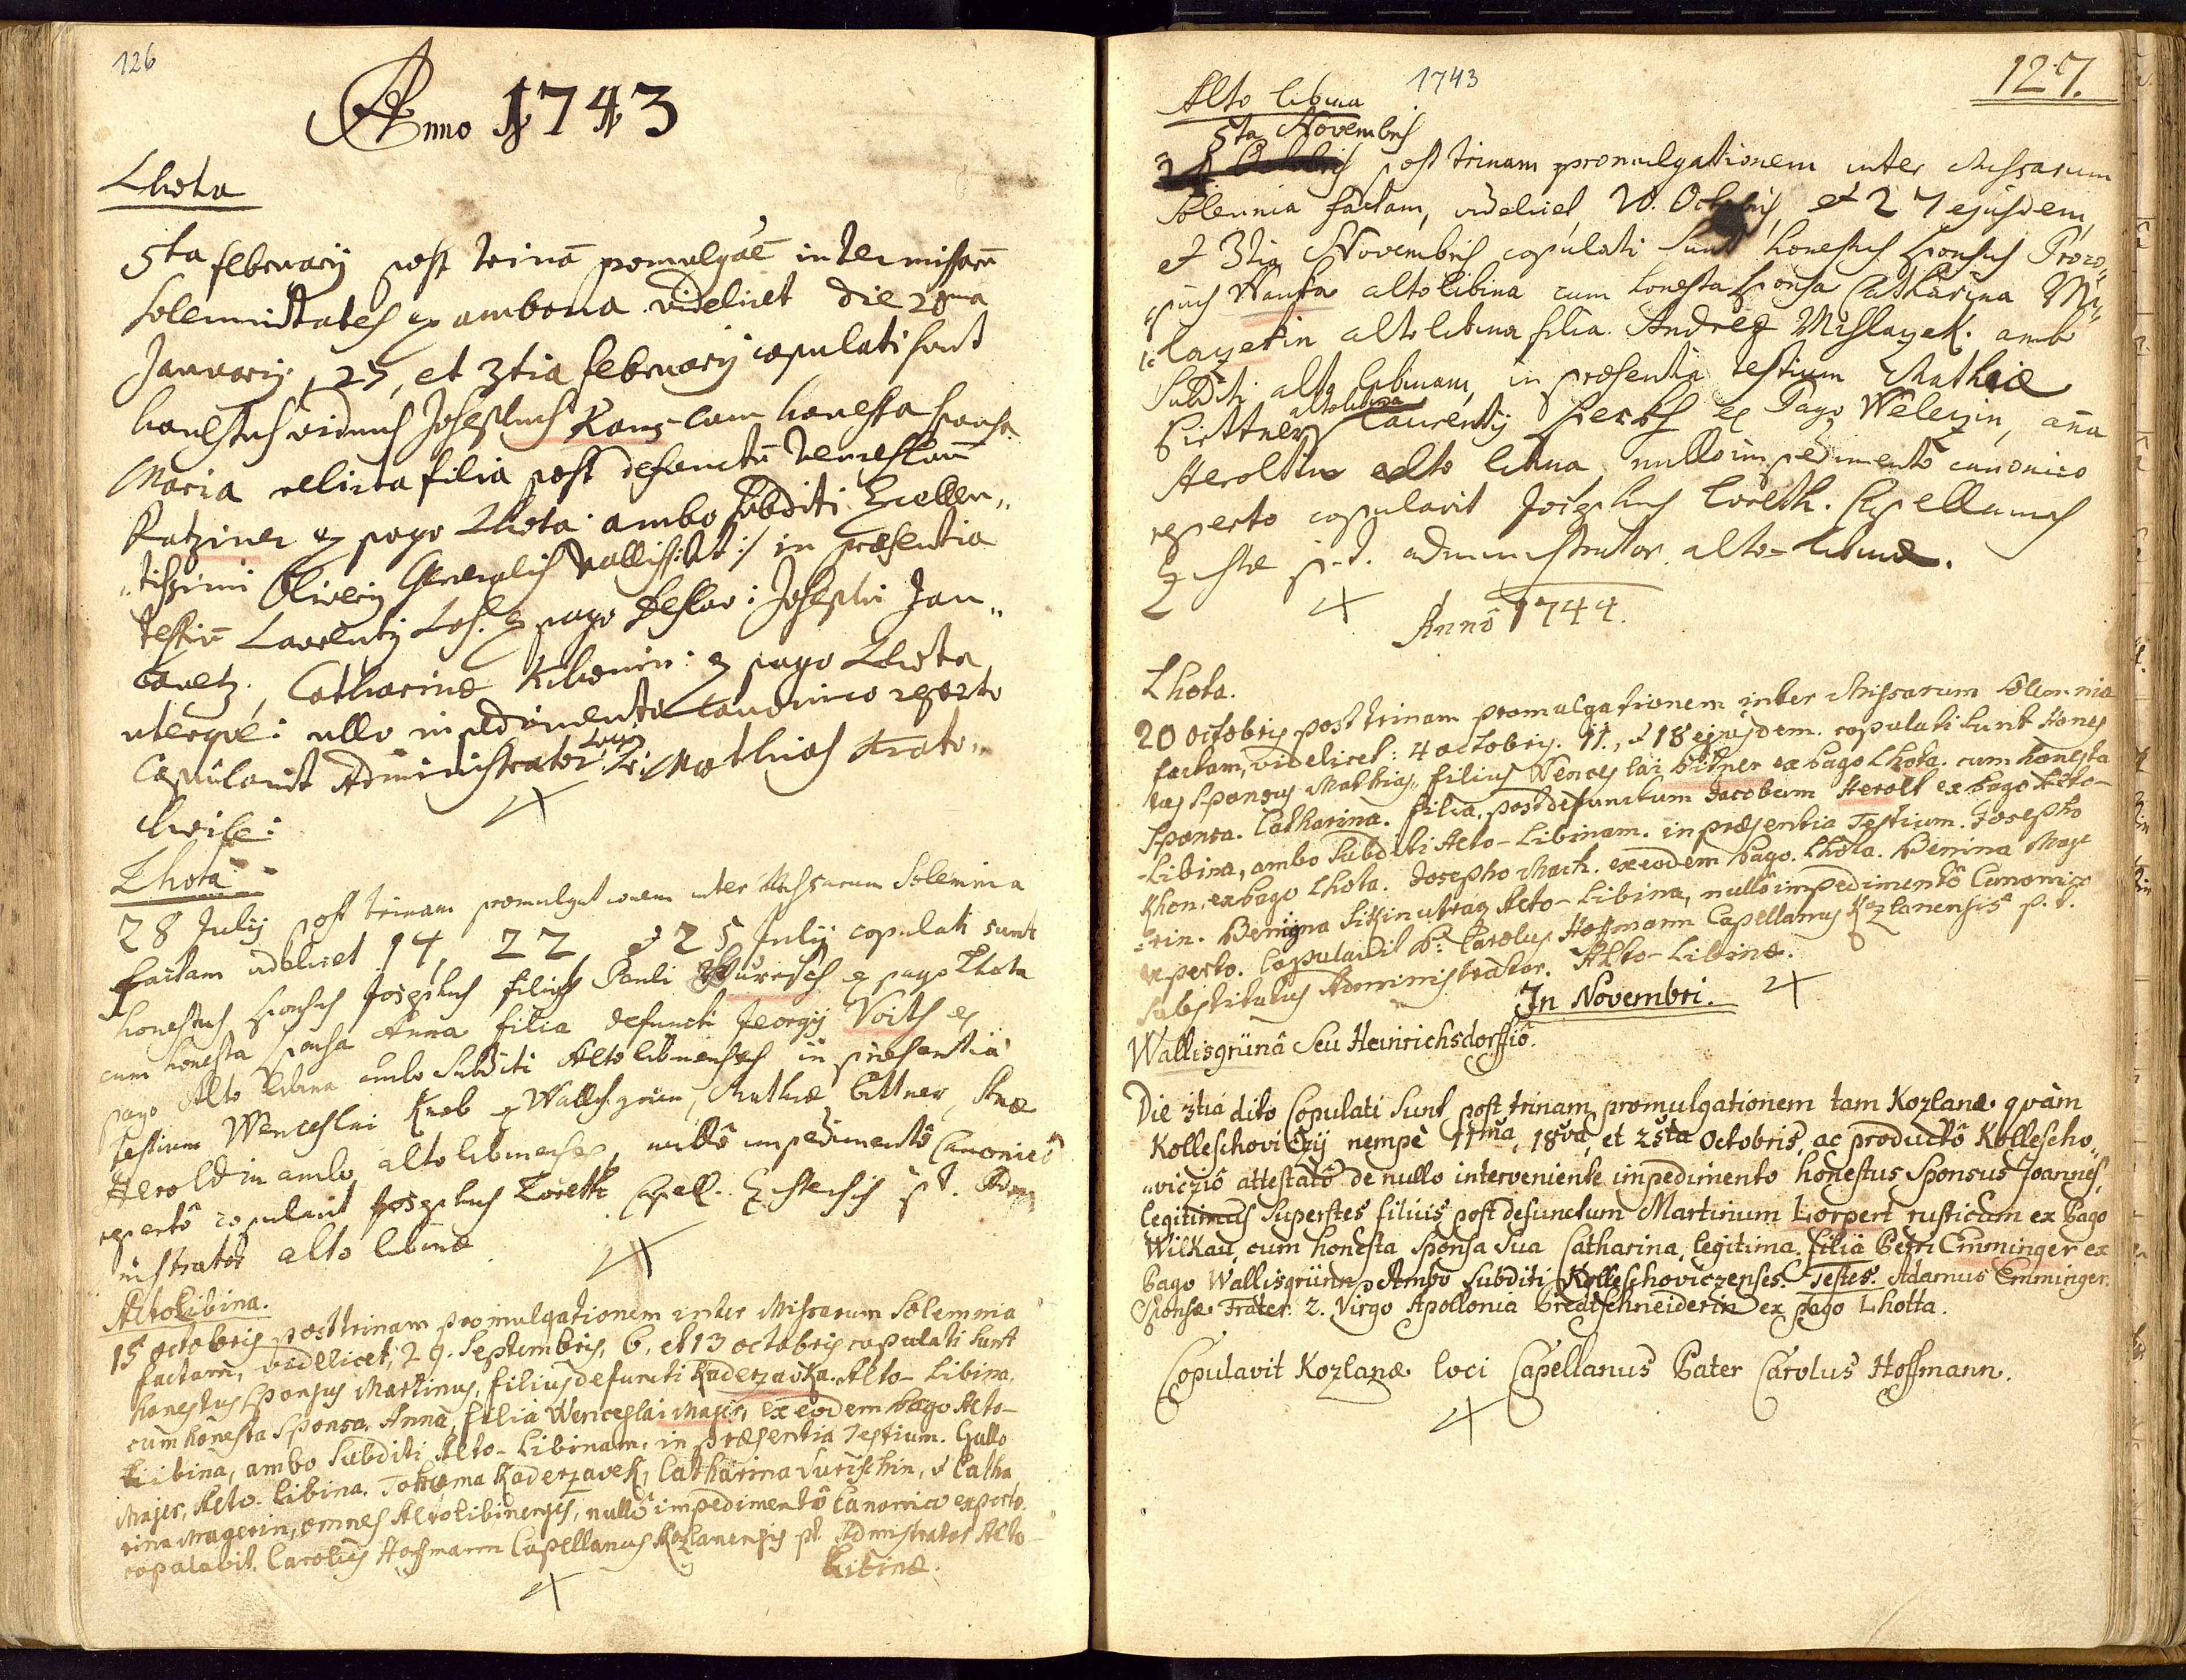 126
Anno 1743
Lhota
5ta februarij post trinā promulgāē inter missarū
solemnitates ex ambona videlicet die 20ma
Januarij, 27, et 3tia februarij copulati sunt
honestus viduus Josephus Kans cum honesta sponsa
Maria relicta filia post defunctū Wenceslaū
Katziner ex pago Lhota ambo subditi Excellen„
„tissimi Oliverij Generalis Wallis :/ in præsentia
testiū Laurentij Los. ex pago : Josephi Jan„
, Catharinæ : ex pago Lhota
uterque : nullo impedimento canonico reperto
Copulavit Administrator Loci Mathias
Lhota
28 Julij post trinam promulgationem inter Missarum Solemnia
factam videlicet 14, 22, & 25 Julij copulati sunt
honestus sponsus Josephus filius Pauli ex pago Lhota
cum honesta sponsa Anna filia defuncti Georgij Voith ex
pago Alto libina ambo subditi Alto libinenses in præsentia
testium Wenceslai Knob ex Wallisgrün, Mathiæ Bittner, Annæ
Heroldin ambo alto libinenses, nullô impedimentô Canonicô
repertô copulavit Josephus Loreth Capell. p.t. Admi
nistrator alto libinæ
Alto Libina.
15 octobris post trinam promulgationem inter Missarum Solemnia
factam, videlicet, 29. Septembris, 6, et 13 octobris copulati sunt
honestus Sponsus Martinus, filius defuncti Kaderzavka. Alto-Libina,
cum honesta Sponsa. Anna, filia Wenceslai Majer, ex eodem Pago Alto-
Libina, ambo Subditi Alto-Libinam. in præsentia Testium. Gallo
Majer, Alto-Libina. Kaderzavek, Catharina Surischin, & Catha
rina Magerin, omnes Altolibinensis, nullô impedimentô Canonico experto.
copulavit. Carolus Hoffmann Capellanus Kozlanensis pt. Admistrator Alto-
Libinæ.
1743
127.
Alto libina
5ta Novembris
post trinam promulgationem inter Missarum
Solemnia factam, videlicet 20. Octobris, et 27 ejusdem,
et 3tia Novembris copulati sunt honestus sponsus Proco„
pius Wanka alto libina cum honesta sponsa Catharina Mis„
layekin alto libina filia Andreæ Mislayek. ambo
Subditi alto libinam, in præsentia testium Mathiæ
Bittner alto libina Laurentij ex Pago Welezin, aña
Heroltin alto libina nullo impedimentô canonico
reperto copulavit Josephus Loreth. Capellanus
p.t. administrator alto-libinæ.
Annô 1744.
Lhota.
20 octobris post trinam promulgationem inter Missarum Solemnia
factam, videlicet : 4 octobris. 11., & 18 ejusdem. copulati sunt Hones
tus Sponsus Mathias, filius Wenceslai Bitner ex Pago Lhota. cum honesta
Sponsa. Catharina. filia. post defunctum Jacobum Herolt ex Pago Alto-
-Libina, ambo Subditi Alto-Libinam. in præsentia Testium. Josepho
Khon, ex Pago Lhota. Josepho Mach. ex eodem Pago. Lhota. Benina Maye
:rin. Benigna Sikin utraq Alto-Libina, nullô impedimentô Canonico
reperto. Copulavit P: Carolus Hoffmann Capellanus Kozlanensis p.t.
Substitutus Administrator. Alto-Libinæ.
In Novembri.
Wallisgrünâ Seu Heinrichsdorffiô.
Die 3tiâ dito Copulati Sunt post trinam promulgationem tam Kozlanæ quàm
Kolleschoviczij nempè 11mâ, 18vâ, et 25tâ Octobris, ac productô Kollescho„
„vicziô attestatô de nullo interveniente impedimento honestus Sponsus Joannes,
legitimus Superstes filius post defunctum Martinum Lorpert rusticum ex Pago
Wilkau, cum honesta Sponsa Sua Catharina, legitima filia Petri Emminger ex
Pago Wallisgrünn, Ambo Subditi Kolleschoviczenses. Testes. Adamus Emminger
Sponsæ Frater 2. Virgo Apollonia Bredtschneiderin ex pago Lhotta.
Copulavit Kozlanæ loci Capellanus Pater Carolus Hoffmann.